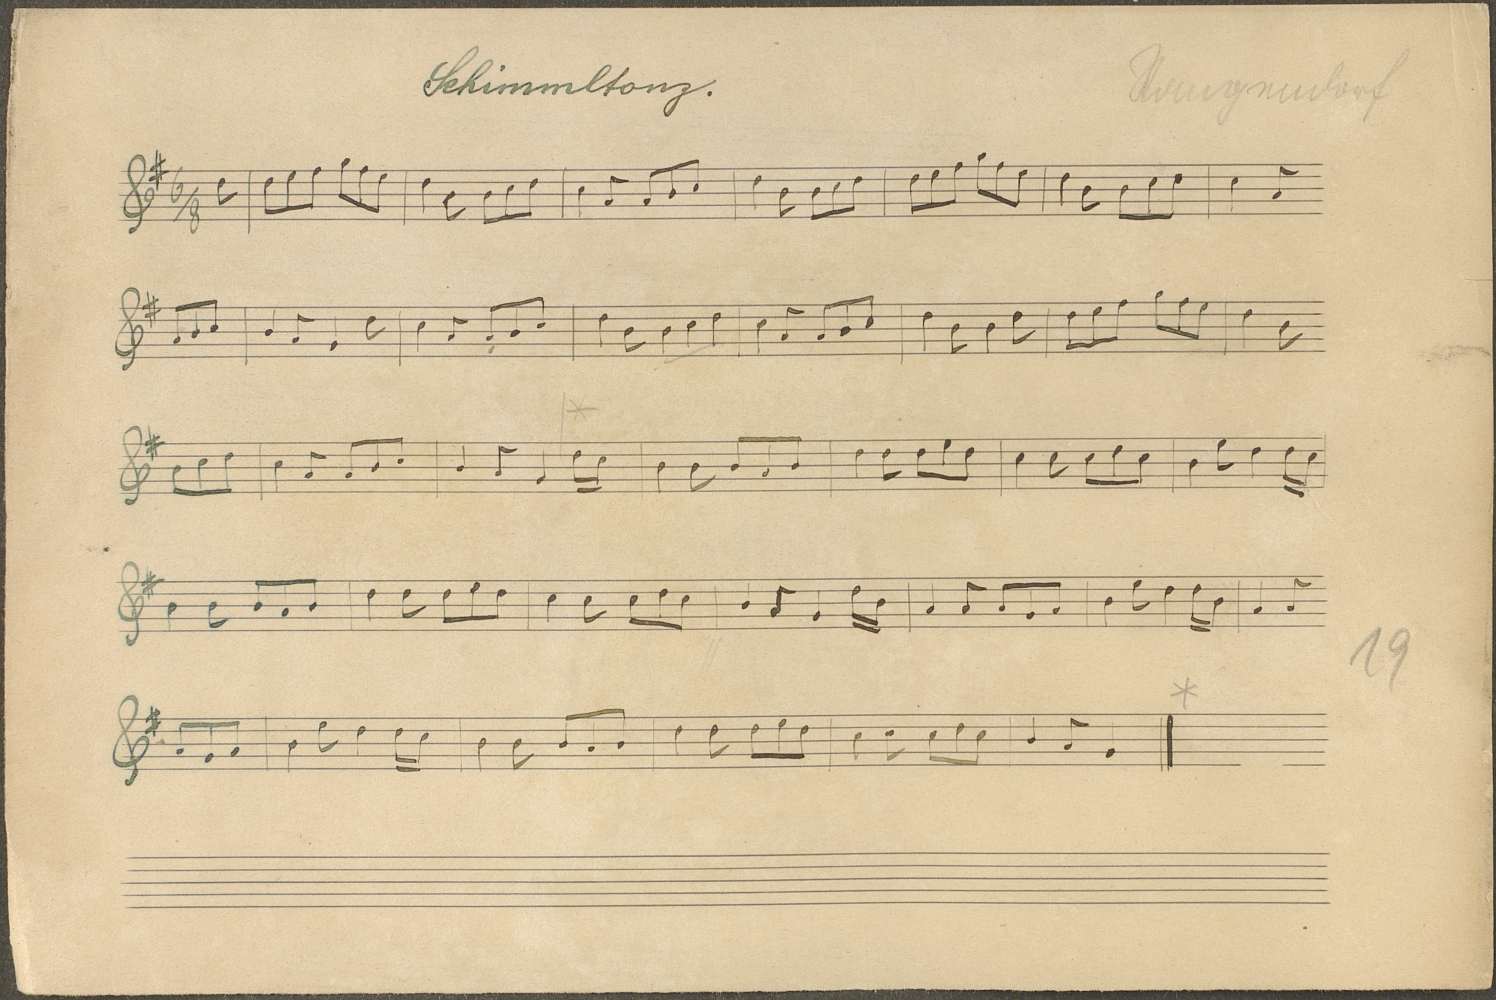 Schimmltonz.
6/8
19